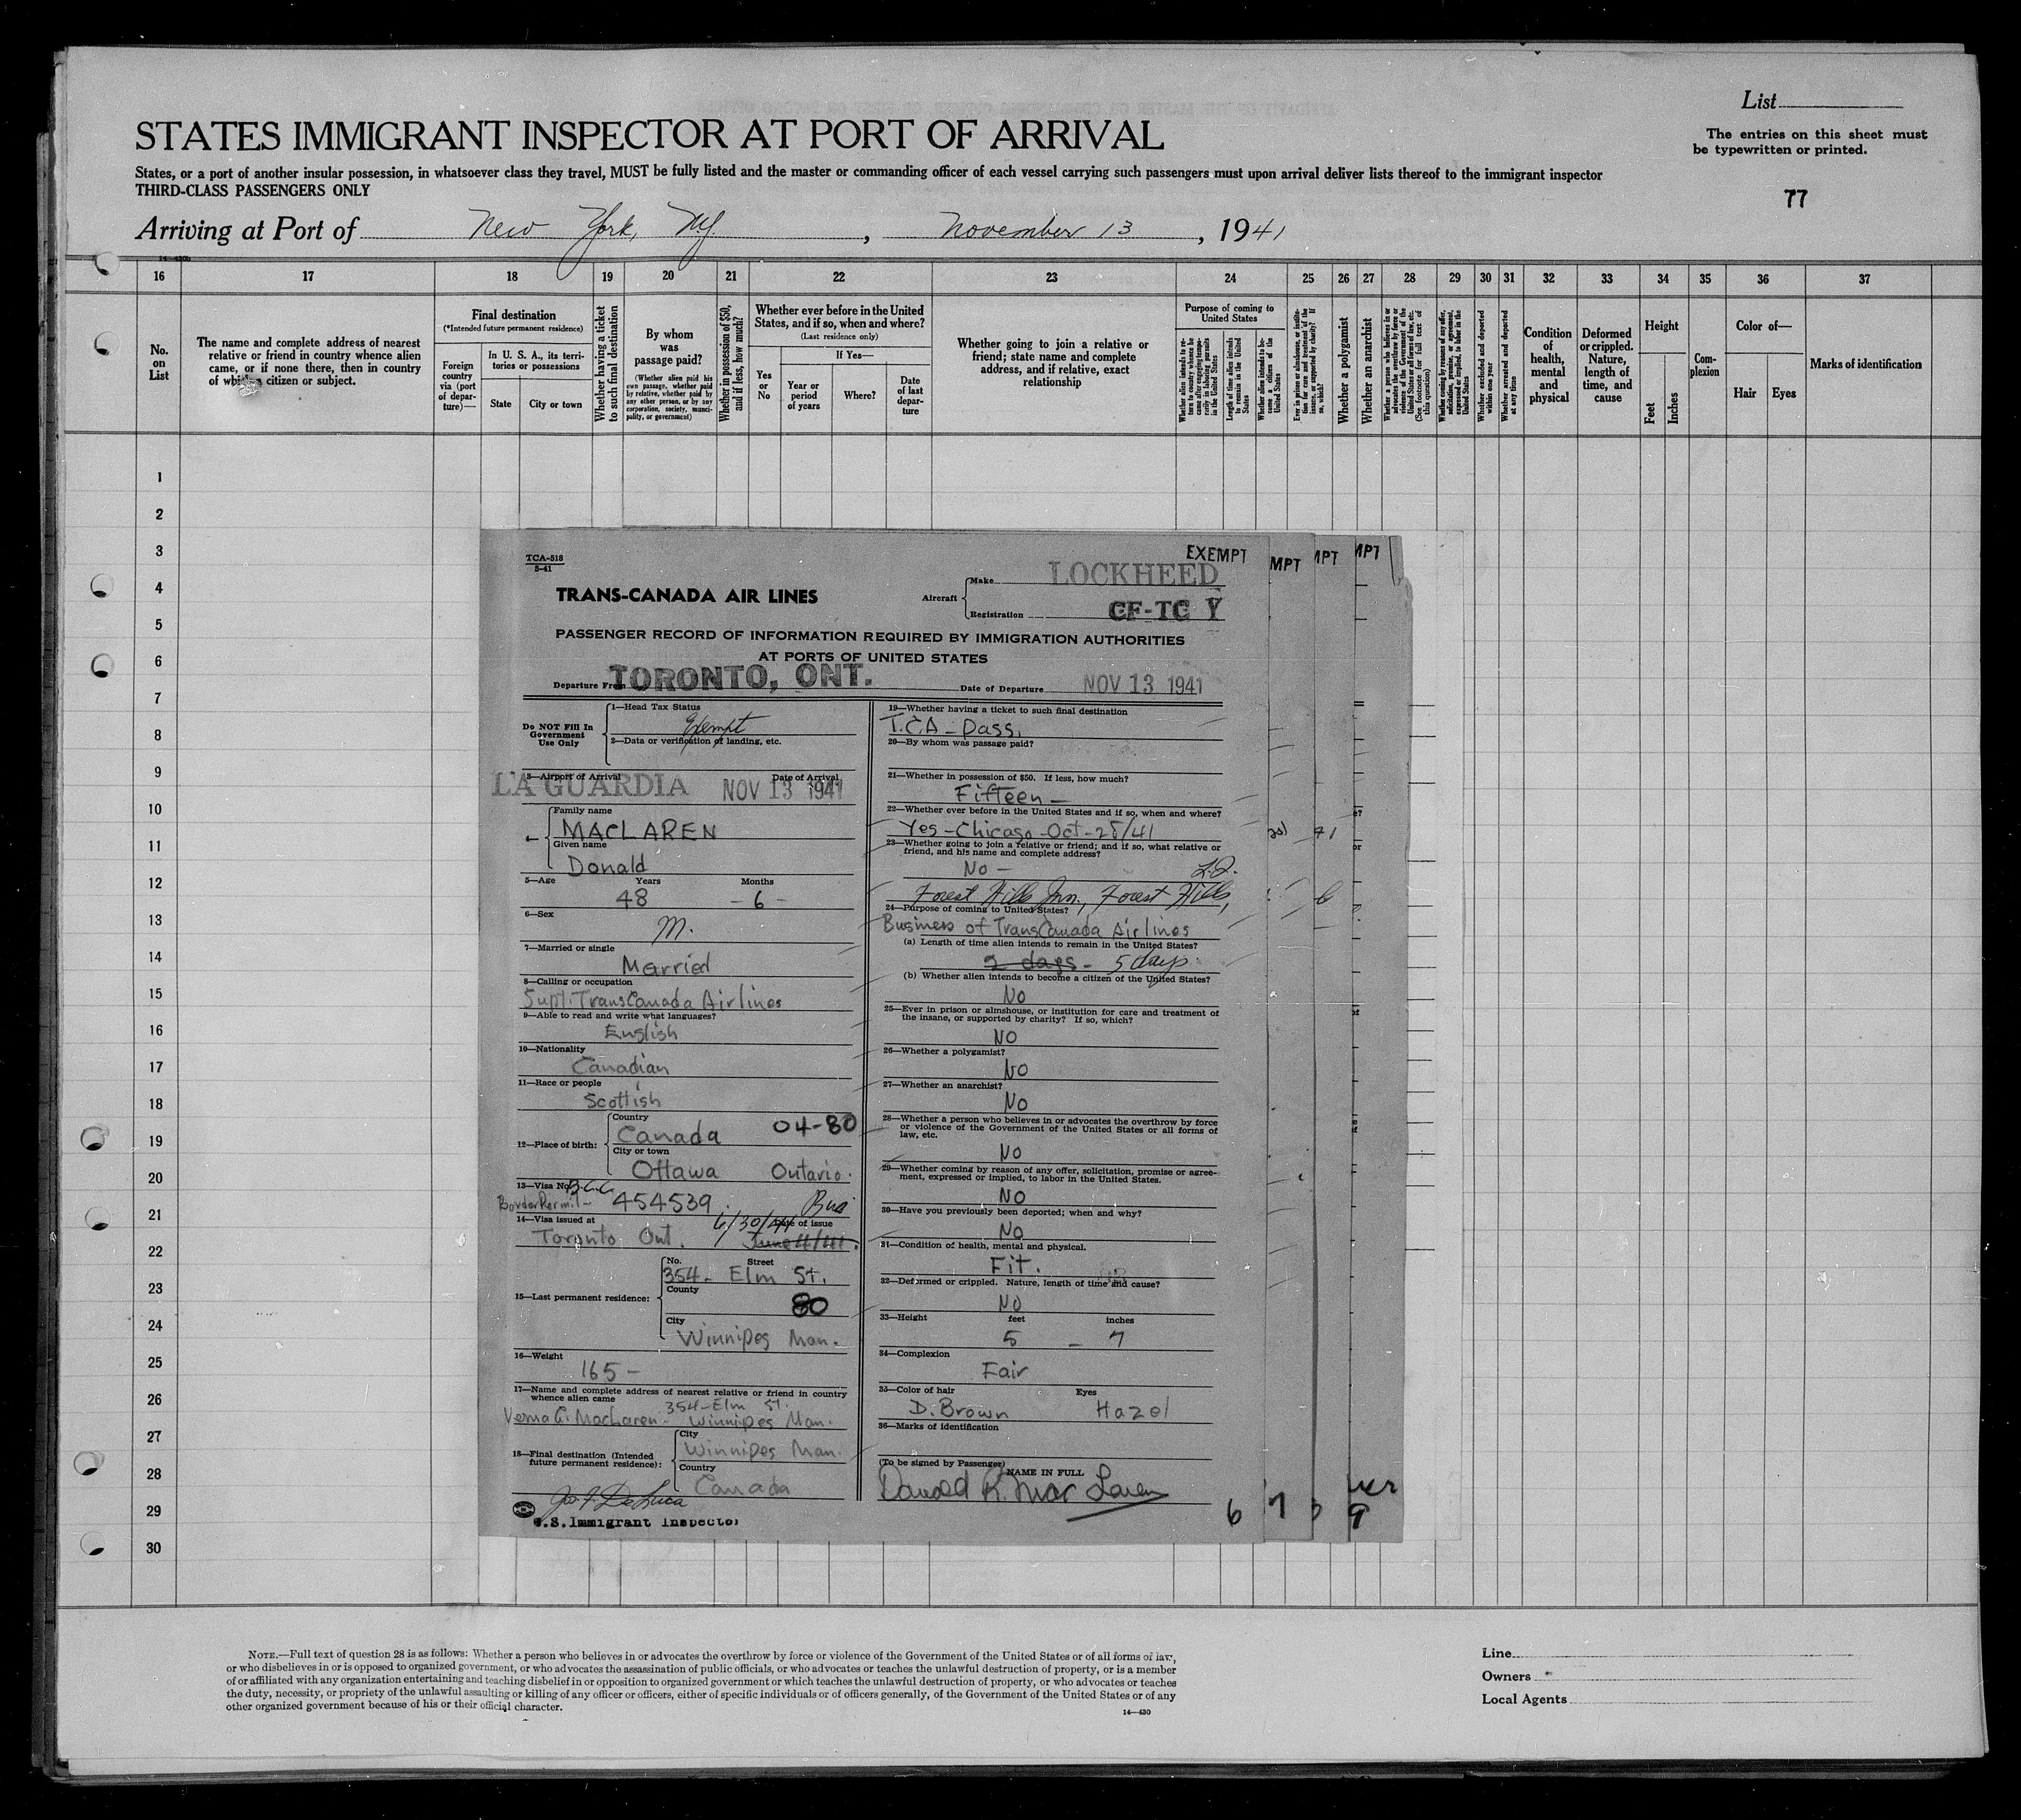 List
STATES IMMIGRANT INSPECTOR AT PORT OF ARRIVAL
The entries on this sheet must
be typewritten or printed.
States, or a port of another insular possession, in whatsoever class they travel, MUST be fully listed and the master or commanding officer of each vessel carrying such passengers must upon arrival deliver lists thereof to the immigrant inspector
THIRD-CLASS PASSENGERS ONLY
77
Arriving at Port of New York, N.Y. , November 13 , 1941
16 17 18 19 20 21 22 23 24 25 26 27 28 29 30 31 32 33 34 35 36 37
No.
on
List
The name and complete address of nearest
relative or friend in country whence alien
came, or if none there, then in country
of which a citizen or subject.
Final destination
(*Intended future permanent residence)
Foreign
country
via (port
of depar-
ture)—
In U. S. A., its terri-
tories or possessions
State
City or town
Whether having a ticket
to such final destination
By whom
was
passage paid?
(Whether alien paid his
own passage, whether paid
by relative, whether paid by
any other person, or by any
corporation, society, munici-
pality, or government)
Whether in possession of $50,
and if less, how much?
Whether ever before in the United
States, and if so, when and where?
(Last residence only)
Yes
or
No
If Yes—
Year or
period
of years
Where?
Date
of last
depar-
ture
Whether going to join a relative or
friend; state name and complete
address, and if relative, exact
relationship
Purpose of coming to
United States
Length of time alien intends
to remain in the United
States
Whether alien intends to be-
come a citizen of the
United States
Whether a polygamist
Whether an anarchist
Whether excluded and deported
within one year
Whether arrested and deported
at any time
Condition
of
health,
mental
and
physical
Deformed
or crippled.
Nature,
length of
time, and
cause
Height
Feet
Inches
Com-
plexion
Color of—
Hair
Eyes
Marks of identification
1
2
3
4
5
6
7
8
9
10
11
12
13
14
15
16
17
18
19
20
21
22
23
24
25
26
27
28
29
30
TCA-518
5-41
EXEMPT
MPT
MPT
MPT
TRANS-CANADA AIR LINES
Aircraft
Make LOCKHEED
Registration CF-TC Y
PASSENGER RECORD OF INFORMATION REQUIRED BY IMMIGRATION AUTHORITIES
AT PORTS OF UNITED STATES
Departure From TORONTO, ONT. Date of Departure NOV 13 1941
Do NOT Fill In
Government
Use Only
1—Head Tax Status
Exempt
2—Data or verification of landing, etc.
3—Airport of Arrival Date of Arrival
LA GUARDIA NOV 13 1941
Family name
MACLAREN
Given name
Donald
5—Age Years Months
48 - 6 -
6—Sex
M.
7—Married or single
Married
8—Calling or occupation
Supt. TransCanada Airlines
9—Able to read and write what languages?
English
10—Nationality
Canadian
11—Race or people
Scottish
12—Place of birth:
Country
Canada 04-80
City or town
Ottawa Ontario.
13—Visa No. B.C.C.
Border Permit - 454539 Bus
14—Visa issued at Date of issue
6/30/41
Toronto Ont.
15—Last permanent residence:
No. Street
354 - Elm St.
County
80
City
Winnipeg Man.
16—Weight
165 -
17—Name and complete address of nearest relative or friend in country
whence alien came
354-Elm St.
Verna G. MacLaren - Winnipeg Man.
18—Final destination (Intended
future permanent residence):
City
Winnipeg Man.
Country
Canada
Jos. F. DeLuca
U.S. Immigrant Inspector
19—Whether having a ticket to such final destination
T.C.A - Pass.
20—By whom was passage paid?
21—Whether in possession of $50. If less, how much?
Fifteen —
22—Whether ever before in the United States and if so, when and where?
Yes - Chicago - Oct - 28/41
23—Whether going to join a relative or friend; and if so, what relative or
friend, and his name and complete address?
No — L.I.
Forest Hills Inn, Forest Hills,
24—Purpose of coming to United States?
Business of TransCanada Airlines
(a) Length of time alien intends to remain in the United States?
2 days - 5 days
(b) Whether alien intends to become a citizen of the United States?
No
25—Ever in prison or almshouse, or institution for care and treatment of
the insane, or supported by charity? If so, which?
NO
26—Whether a polygamist?
NO
27—Whether an anarchist?
No
28—Whether a person who believes in or advocates the overthrow by force
or violence of the Government of the United States or all forms of
law, etc.
No
29—Whether coming by reason of any offer, solicitation, promise or agree-
ment, expressed or implied, to labor in the United States.
NO
30—Have you previously been deported; when and why?
No
31—Condition of health, mental and physical.
Fit.
32—Deformed or crippled. Nature, length of time and cause?
No
33—Height feet inches
5 - 7
34—Complexion
Fair
35—Color of hair Eyes
D. Brown Hazel
36—Marks of identification
(To be signed by Passenger) NAME IN FULL
Donald R. MacLaren
6 7 9
NOTE.—Full text of question 28 is as follows: Whether a person who believes in or advocates the overthrow by force or violence of the Government of the United States or of all forms of law,
or who disbelieves in or is opposed to organized government, or who advocates the assassination of public officials, or who advocates or teaches the unlawful destruction of property, or is a member
of or affiliated with any organization entertaining and teaching disbelief in or opposition to organized government or which teaches the unlawful destruction of property, or who advocates or teaches
the duty, necessity, or propriety of the unlawful assaulting or killing of any officer or officers, either of specific individuals or of officers generally, of the Government of the United States or of any
other organized government because of his or their official character.
14—430
Line
Owners
Local Agents